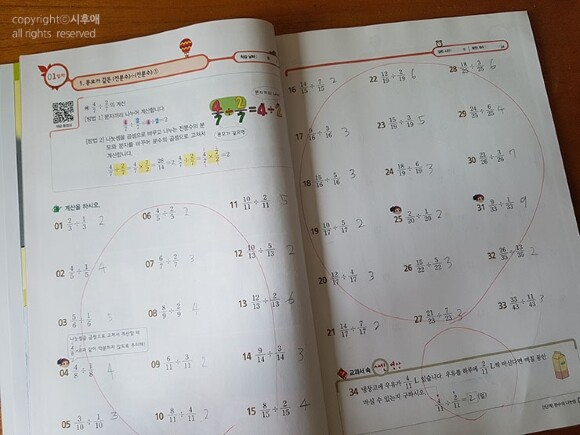 copyrightⓒ시후애
all rights reserved
01일차
1. 분모가 같은 (진분수)÷(진분수)①
예 4/7 ÷ 2/7의 계산
[방법 1] 분자끼리 나누어 계산합니다.
[방법 2] 나눗셈을 곱셈으로 바꾸고 나누는 진분수의 분
모와 분자를 바꾸어 분수의 곱셈으로 고쳐서
계산합니다.
4/7 ÷ 2/7 = 4 ÷ 2
분모가 같으면
계산을 하시오.
01 2/3 ÷ 1/3 2
02 4/5 ÷ 1/5 4
03 5/6 ÷ 1/6 5
나눗셈을 곱셈으로 고쳐서 계산할 때
04 4/8 ÷ 1/8 4
05 3/10 ÷ 1/10 3
06 4/5 ÷ 2/5 2
07 6/7 ÷ 2/7 3
08 8/9 ÷ 2/9 4
09 6/11 ÷ 3/11 2
10 8/11 ÷ 4/11 2
11 10/11 ÷ 2/11 5
12 10/13 ÷ 5/13 2
13 12/13 ÷ 2/13 6
14 9/14 ÷ 3/14 3
15 8/15 ÷ 2/15 4
16 14/15 ÷ 7/15 2
17 9/16 ÷ 3/16 3
18 15/16 ÷ 5/16 3
19 10/17 ÷ 5/17 2
20 12/17 ÷ 4/17 3
21 14/17 ÷ 7/17 2
22 12/19 ÷ 2/19 6
23 15/19 ÷ 3/19 5
24 18/19 ÷ 6/19 3
25 2/20 ÷ 1/20 2
26 15/22 ÷ 5/22 3
27 21/23 ÷ 7/23 3
28 18/25 ÷ 6/25 3
29 24/25 ÷ 6/25 4
30 21/26 ÷ 3/26 7
31 9/33 ÷ 1/33 9
32 26/35 ÷ 13/35 2
33 33/43 ÷ 11/43 3
교과서 속
34 냉장고에 우유가 4/11 L 있습니다. 우유를 하루에 2/11 L씩 마신다면 며칠 동안
마실 수 있는지 구하시오.
4/11 ÷ 2/11 = 2 (일)